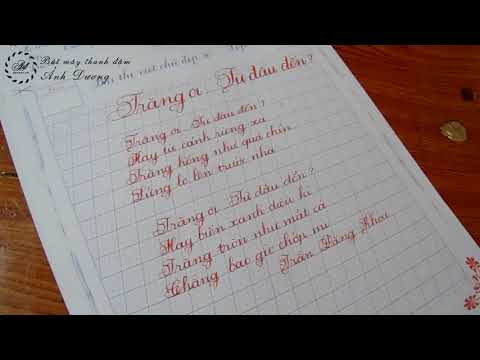 Bút máy thanh đậm
Ánh Dương
Bài thi viết chữ đẹp
Trăng ơi... Từ đâu đến?
Trăng ơi... Từ đâu đến?
Hay từ cánh rừng xa
Trăng hồng như quả chín
Lửng lơ lên trước nhà
Trăng ơi... Từ đâu đến?
Hay biển xanh diệu kì
Trăng tròn như mắt cá
Chẳng bao giờ chớp mi
Trần Đăng Khoa